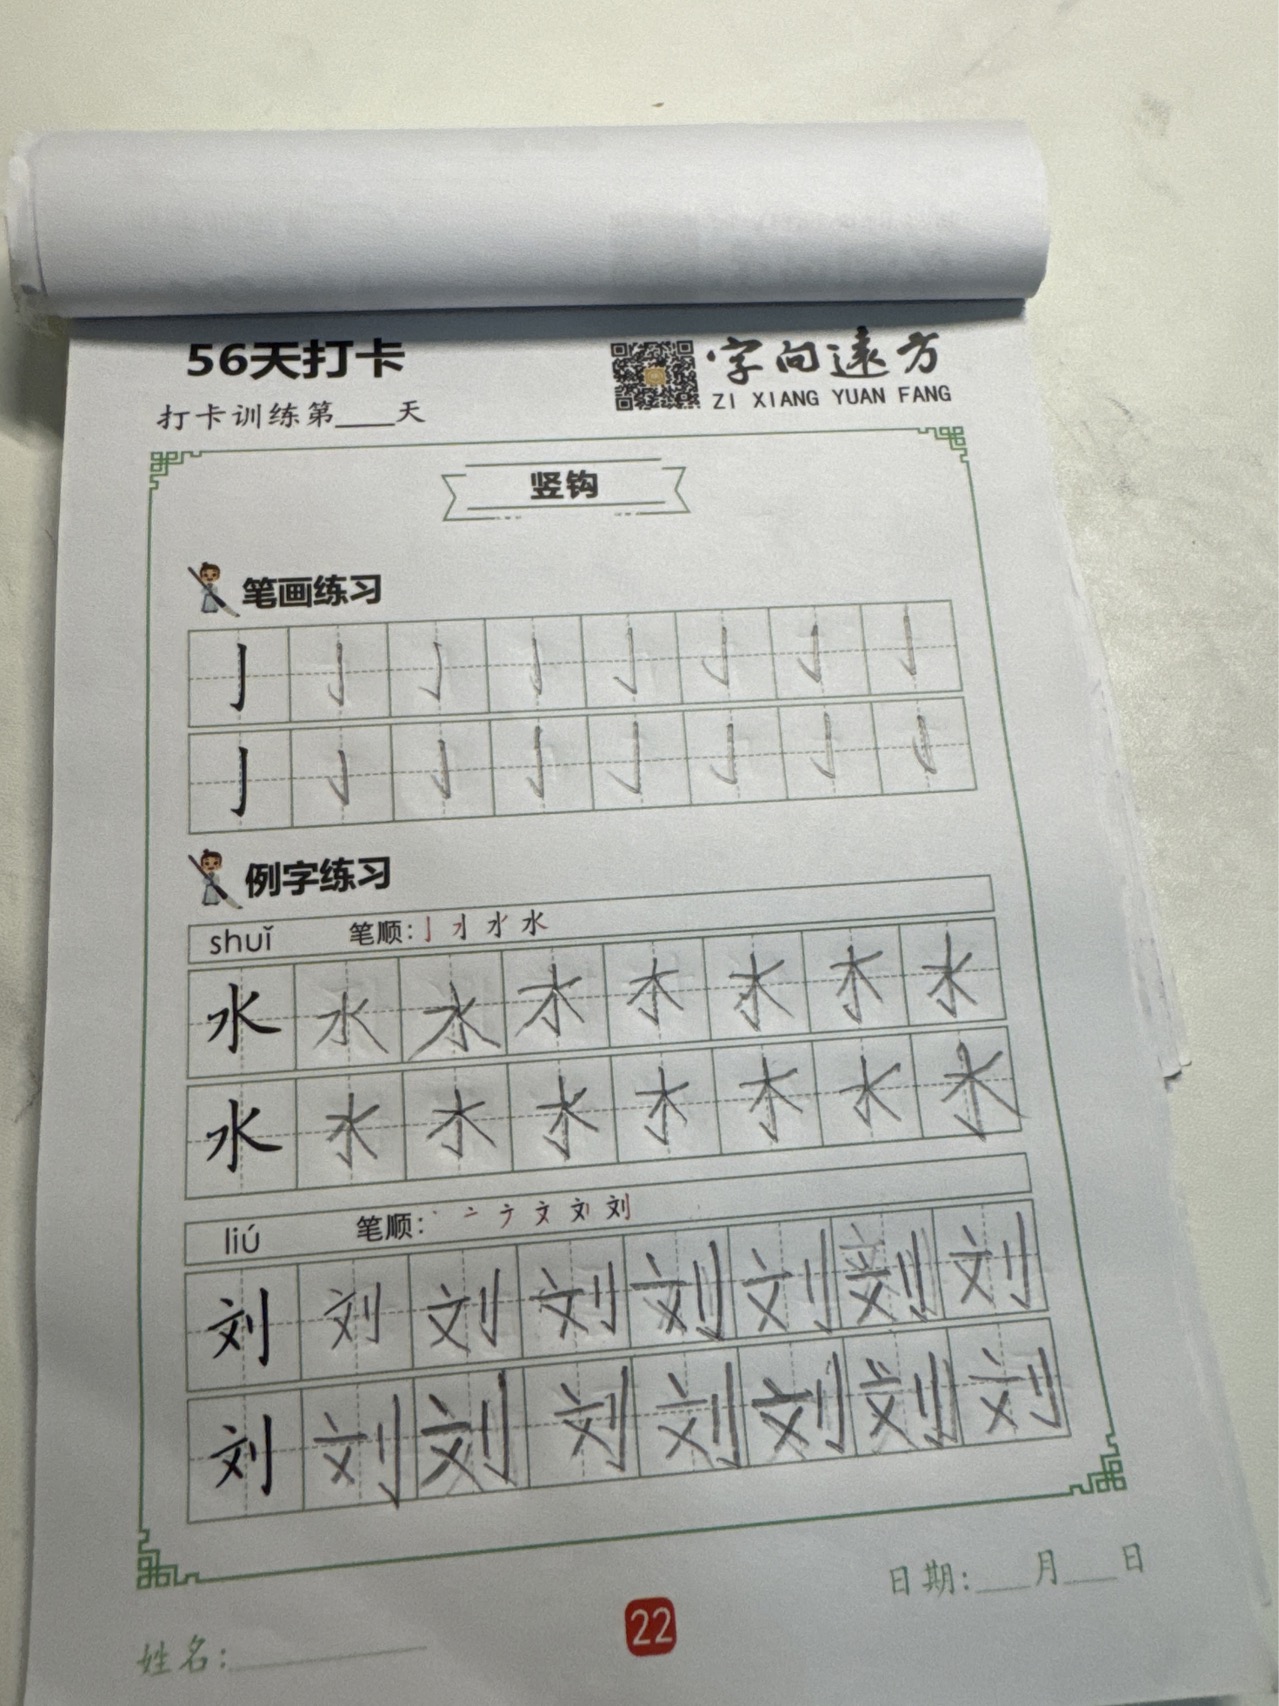 56天打卡
字向远方
ZI XIANG YUAN FANG
打卡训练第____天
竖钩
笔画练习
亅 亅 亅 亅 亅 亅 亅 亅
亅 亅 亅 亅 亅 亅 亅 亅
例字练习
shuǐ 笔顺: 亅 水
水 水 水 水 水 水 水 水
水 水 水 水 水 水 水 水
liú 笔顺: 丶 亠 文 刘
刘 刘 刘 刘 刘 刘 刘 刘
刘 刘 刘 刘 刘 刘 刘 刘
日期:___月___日
22
姓名: